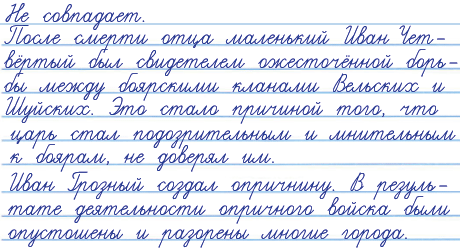 Не совпадает.
После смерти отца маленький Иван Чет-
вёртый был свидетелем ожесточённой борь-
бы между боярскими кланами Вельских и
Шуйских. Это стало причиной того, что
царь стал подозрительным и мнительным
к боярам, не доверял им.
Иван Грозный создал опричнину. В резуль-
тате деятельности опричного войска были
опустошены и разорены многие города.